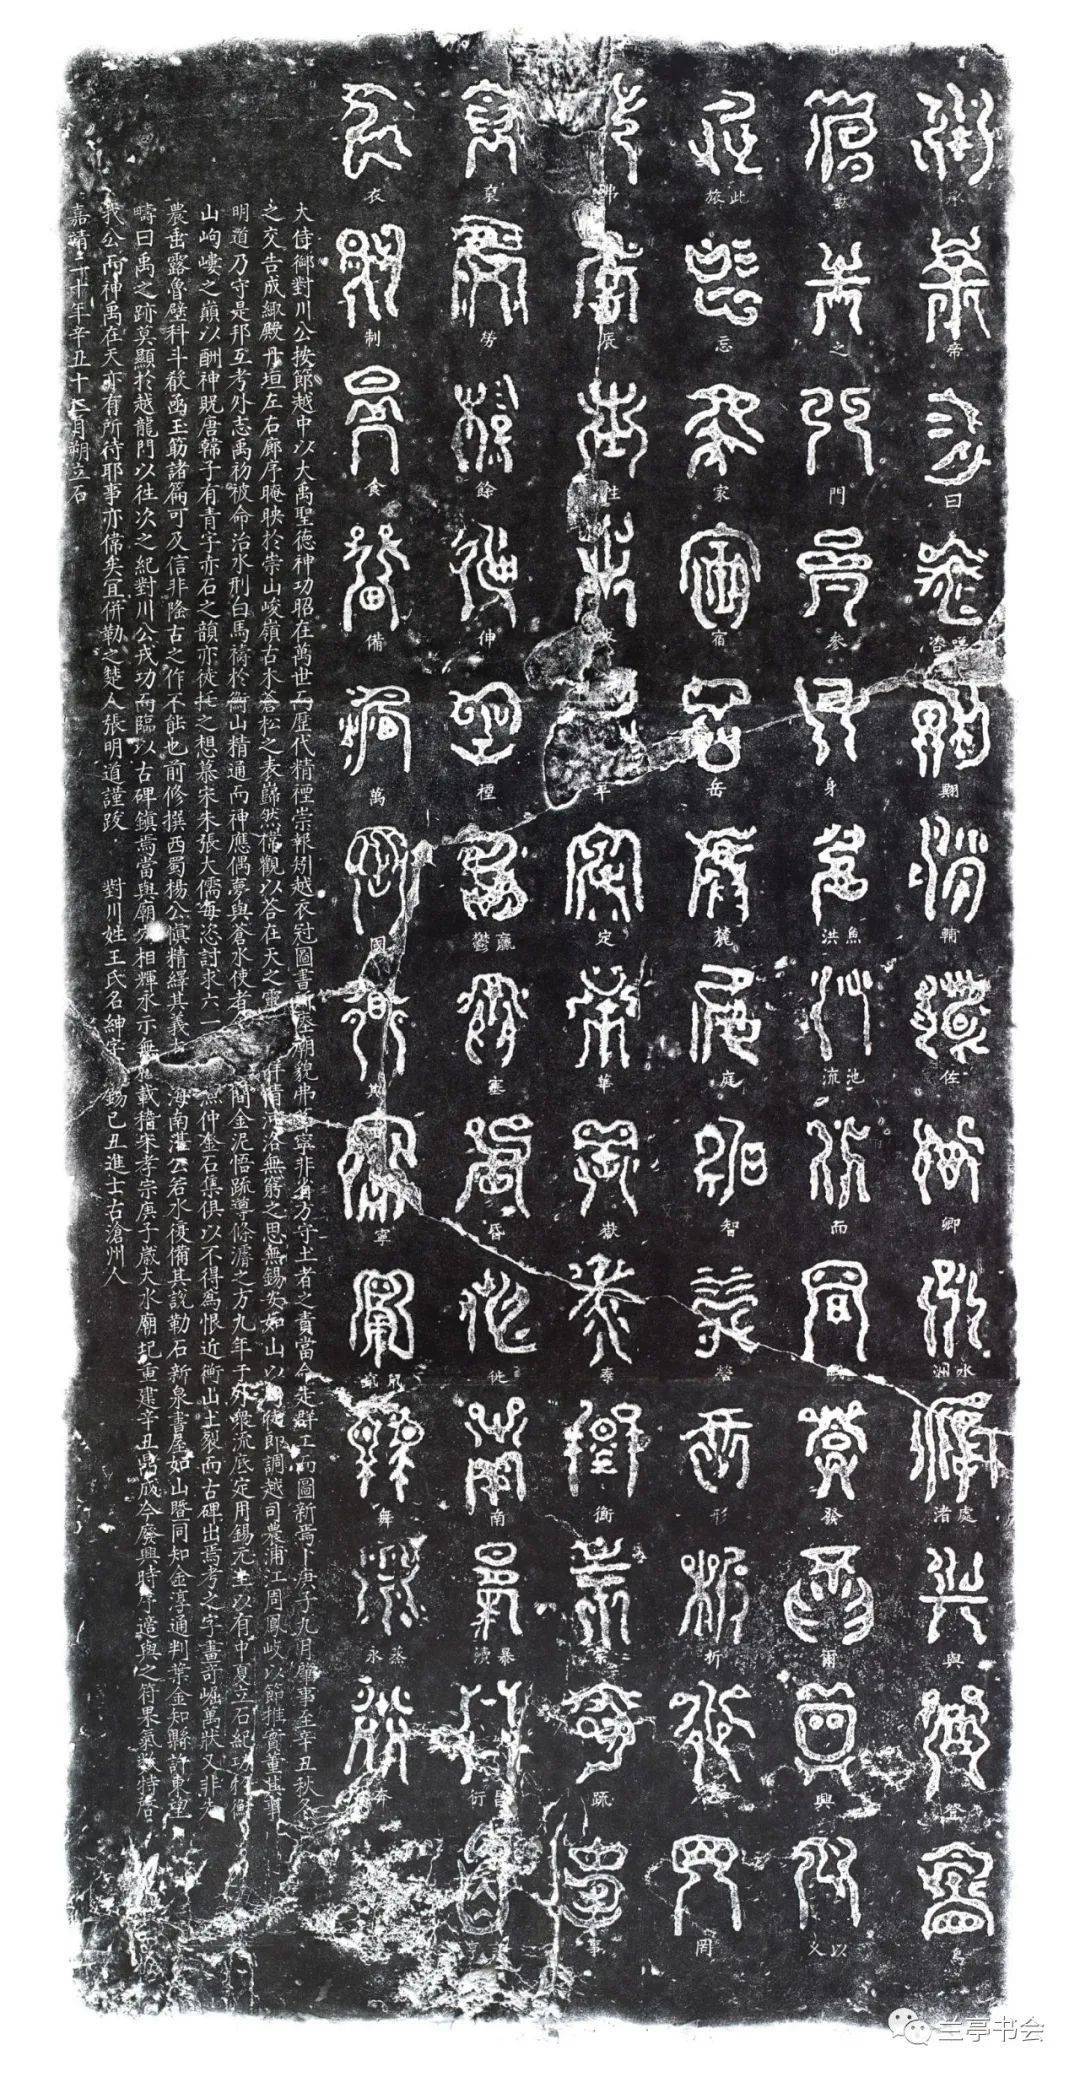 承帝曰咨翼輔佐卿水洲處渚與登鳥
獸之門参身魚洪池流而明發爾興以乂
此旅忘家宿岳麓庭智營形折罔
弗辰往求平定華嶽泰衡宗疏事
裒勞餘伸禋鬱塞昏徙南暴瀆衍亨
衣制食備萬國其寧竄舞蒸永奔
大侍御對川公按節越中以大禹聖德神功昭在萬世而歷代精禋崇報矧越衣冠圖書所蔭廟貌弗寧非省方守土者之責當命走群工而圖新焉卜庚子九月肇事至辛丑秋冬
之交告成緻殿丹垣左右廊序晻映於崇山峻嶺古木蒼松之表巋然偉觀以答在天之靈群情無窮之思無錫安如山以即調越司農浦江周鳳岐以節推實董其事
明道乃守是邦互考外志禹初被命治水刑白馬禱於衡山精通而神應偶夢與蒼水使者簡金泥悟疏導條濬之方九年于外衆流底定用錫元圭以有中夏立石紀功
山岣嶁之巔以酬神貺唐韓子有青字赤石之韻亦徒托之想慕宋朱張大儒每恣討求六一仲金石集俱以不得爲恨近衡山土裂而古碑出焉考之字畫奇崛萬狀又非
農耑露魯壁科斗玉筯諸篇可及信非隆古之作不能也前修撰西蜀揚公慎精繹其義海南湛公若水復備其說勒石新泉書屋如山暨同知金淳通判葉金知縣許東望
疇曰禹之跡莫顯於越龍門以往次之紀對川公戎功而臨以古碑鎮焉當與廟穴相輝永示無載稽宋孝宗庚子歲大水廟圮重建辛丑鼎成今廢興時序適與之符果氣數特啓
我公而神禹在天亦有所待耶事亦偉矣宜併勒之楚人張明道謹跋　對川姓王氏名紳字錫己丑進士古滄州人
嘉靖二十年辛丑十二月朔立石
兰亭书会